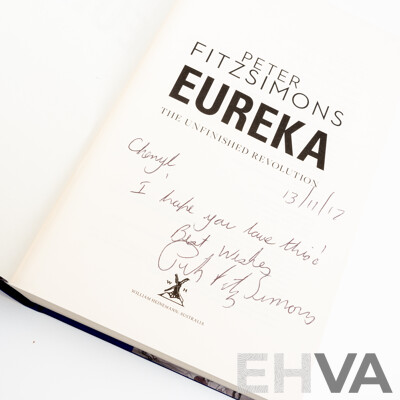 PETER
FITZSIMONS
EUREKA
THE UNFINISHED REVOLUTION
Cheryl
13/11/17
I hope you love this!
Best Wishes
Peter FitzSimons
W H
WILLIAM HEINEMANN: AUSTRALIA
EHVA